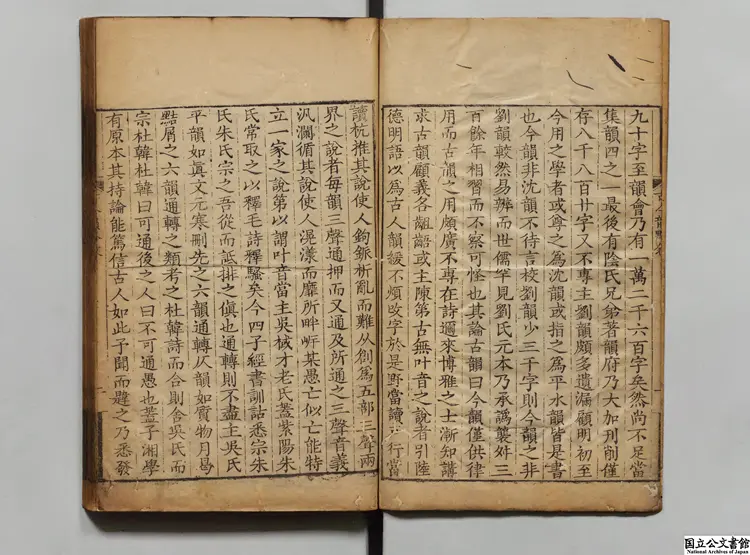 九十字至韻會乃有一萬二千六百字矣然尚不足當
集韻四之一最後有陰氏兄弟著韻府乃大加刋削僅
存八千八百廿字又不專主劉韻頗多遺漏顧明初至
今用之學者或尊之爲沈韻或指之爲平水韻皆是書
也今韻非沈韻不待言校劉韻少三千字則今韻之非
劉韻較然易辨而世儒罕見劉氏元本乃承譌襲舛三
百餘年相習而不察可怪也其論古韻曰今韻僅供律
用而古韻之用頗廣不專在詩邇來博雅之士漸知講
求古韻顧義各齟齬或主陳第古無叶音之說者引陸
德明語以爲古人韻緩不煩改字於是野當讀行當
讀杭推其說使人鉤鈲析亂而難从創爲五部三聲兩
界之說者每韻三聲通押而又通及所通之三聲音義
汎瀾循其說使人滉漾而靡所畔岸某愚亡似亡能特
立一家之說第以謂叶音當主吳棫才老氏蓋紫陽朱
氏常取之以釋毛詩釋騷矣今四子經書訓詁悉宗朱
氏朱氏宗之吾從而詆排之傎也通轉則不盡主吳氏
平韻如眞文元寒刪先之六韻通轉仄韻如質物月曷
黠屑之六韻通轉之類考之杜韓詩而合則舍吳氏而
宗杜韓杜韓曰可通後之人曰不可通愚也蓋子湘學
有原本其持論能篤信古人如此予聞而韙之乃悉發
国立公文書館
National Archives of Japan